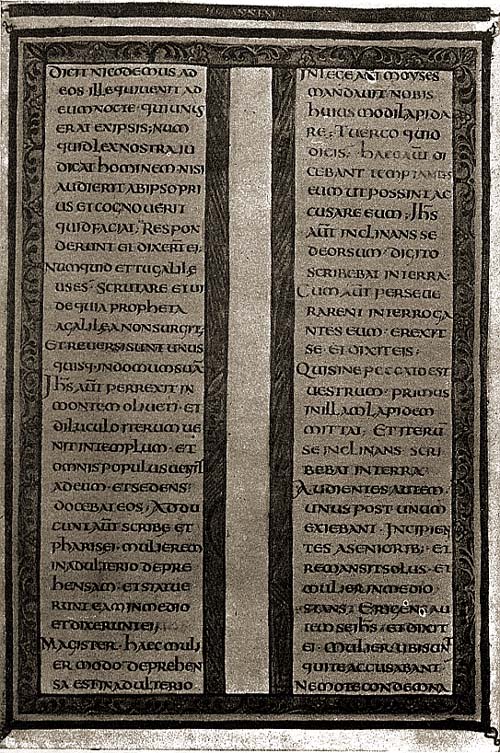 DICIT NICODEMUS AD
EOS ILLE QUI UENIT AD
EUM NOCTE · QUI UNUS
ERAT EX IPSIS; NUM
QUID LEX NOSTRA IU
DICAT HOMINEM NISI
AUDIERIT AB IPSO PRI
US ET COGNOUERIT
QUID FACIAT; RESPON
DERUNT ET DIXER̄ EI;
NUMQUID ET TU GALILE
US ES · SCRUTARE ET UI
DE QUIA PROPHETA
A GALILEA NON SURGIT;
ET REUERSI SUNT UNUS
QUISQ; IN DOMUM SUĀ
IHS̄ AUT̄ PERREXIT IN
MONTEM OLIUETI · ET
DILUCULO ITERUM UE
NIT IN TEMPLUM · ET
OMNIS POPULUS UENIT
AD EUM · ET SEDENS
DOCEBAT EOS; ADDU
CUNT AUT̄ SCRIBE ET
PHARISEI · MULIEREM
IN ADULTERIO DEPRE
HENSAM · ET STATUE
RUNT EAM IN MEDIO
ET DIXERUNT EI;
MAGISTER · HAEC MULI
ER MODO DEPREHEN
SA EST IN ADULTERIO
IN LEGE AUT̄ MOYSES
MANDAUIT NOBIS
HUIUS MODI LAPIDA
RE; TU ERGO QUID
DICIS; HAEC AUT̄ DI
CEBANT TEMPTANTES
EUM UT POSSINT AC
CUSARE EUM; IHS̄
AUT̄ INCLINANS SE
DEORSUM · DIGITO
SCRIBEBAT IN TERRA ·
CUM AUT̄ PERSEUE
RARENT INTERROGA
NTES EUM · EREXIT
SE · ET DIXIT EIS;
QUI SINE PECCATO EST
UESTRUM · PRIMUS
IN ILLAM LAPIDEM
MITTAT · ET ITERŪ
SE INCLINANS · SCRI
BEBAT IN TERRA ·
AUDIENTES AUTEM ·
UNUS POST UNUM
EXIEBANT · INCIPIEN
TES A SENIORIB; · ET
REMANSIT SOLUS · ET
MULIER IN MEDIO
STANS; ERIGENS AU
TEM SE IHS̄ · ET DIXIT
EI · MULIER UBI SUNT
QUI TE ACCUSABANT
NEMO TE CONDEMNA